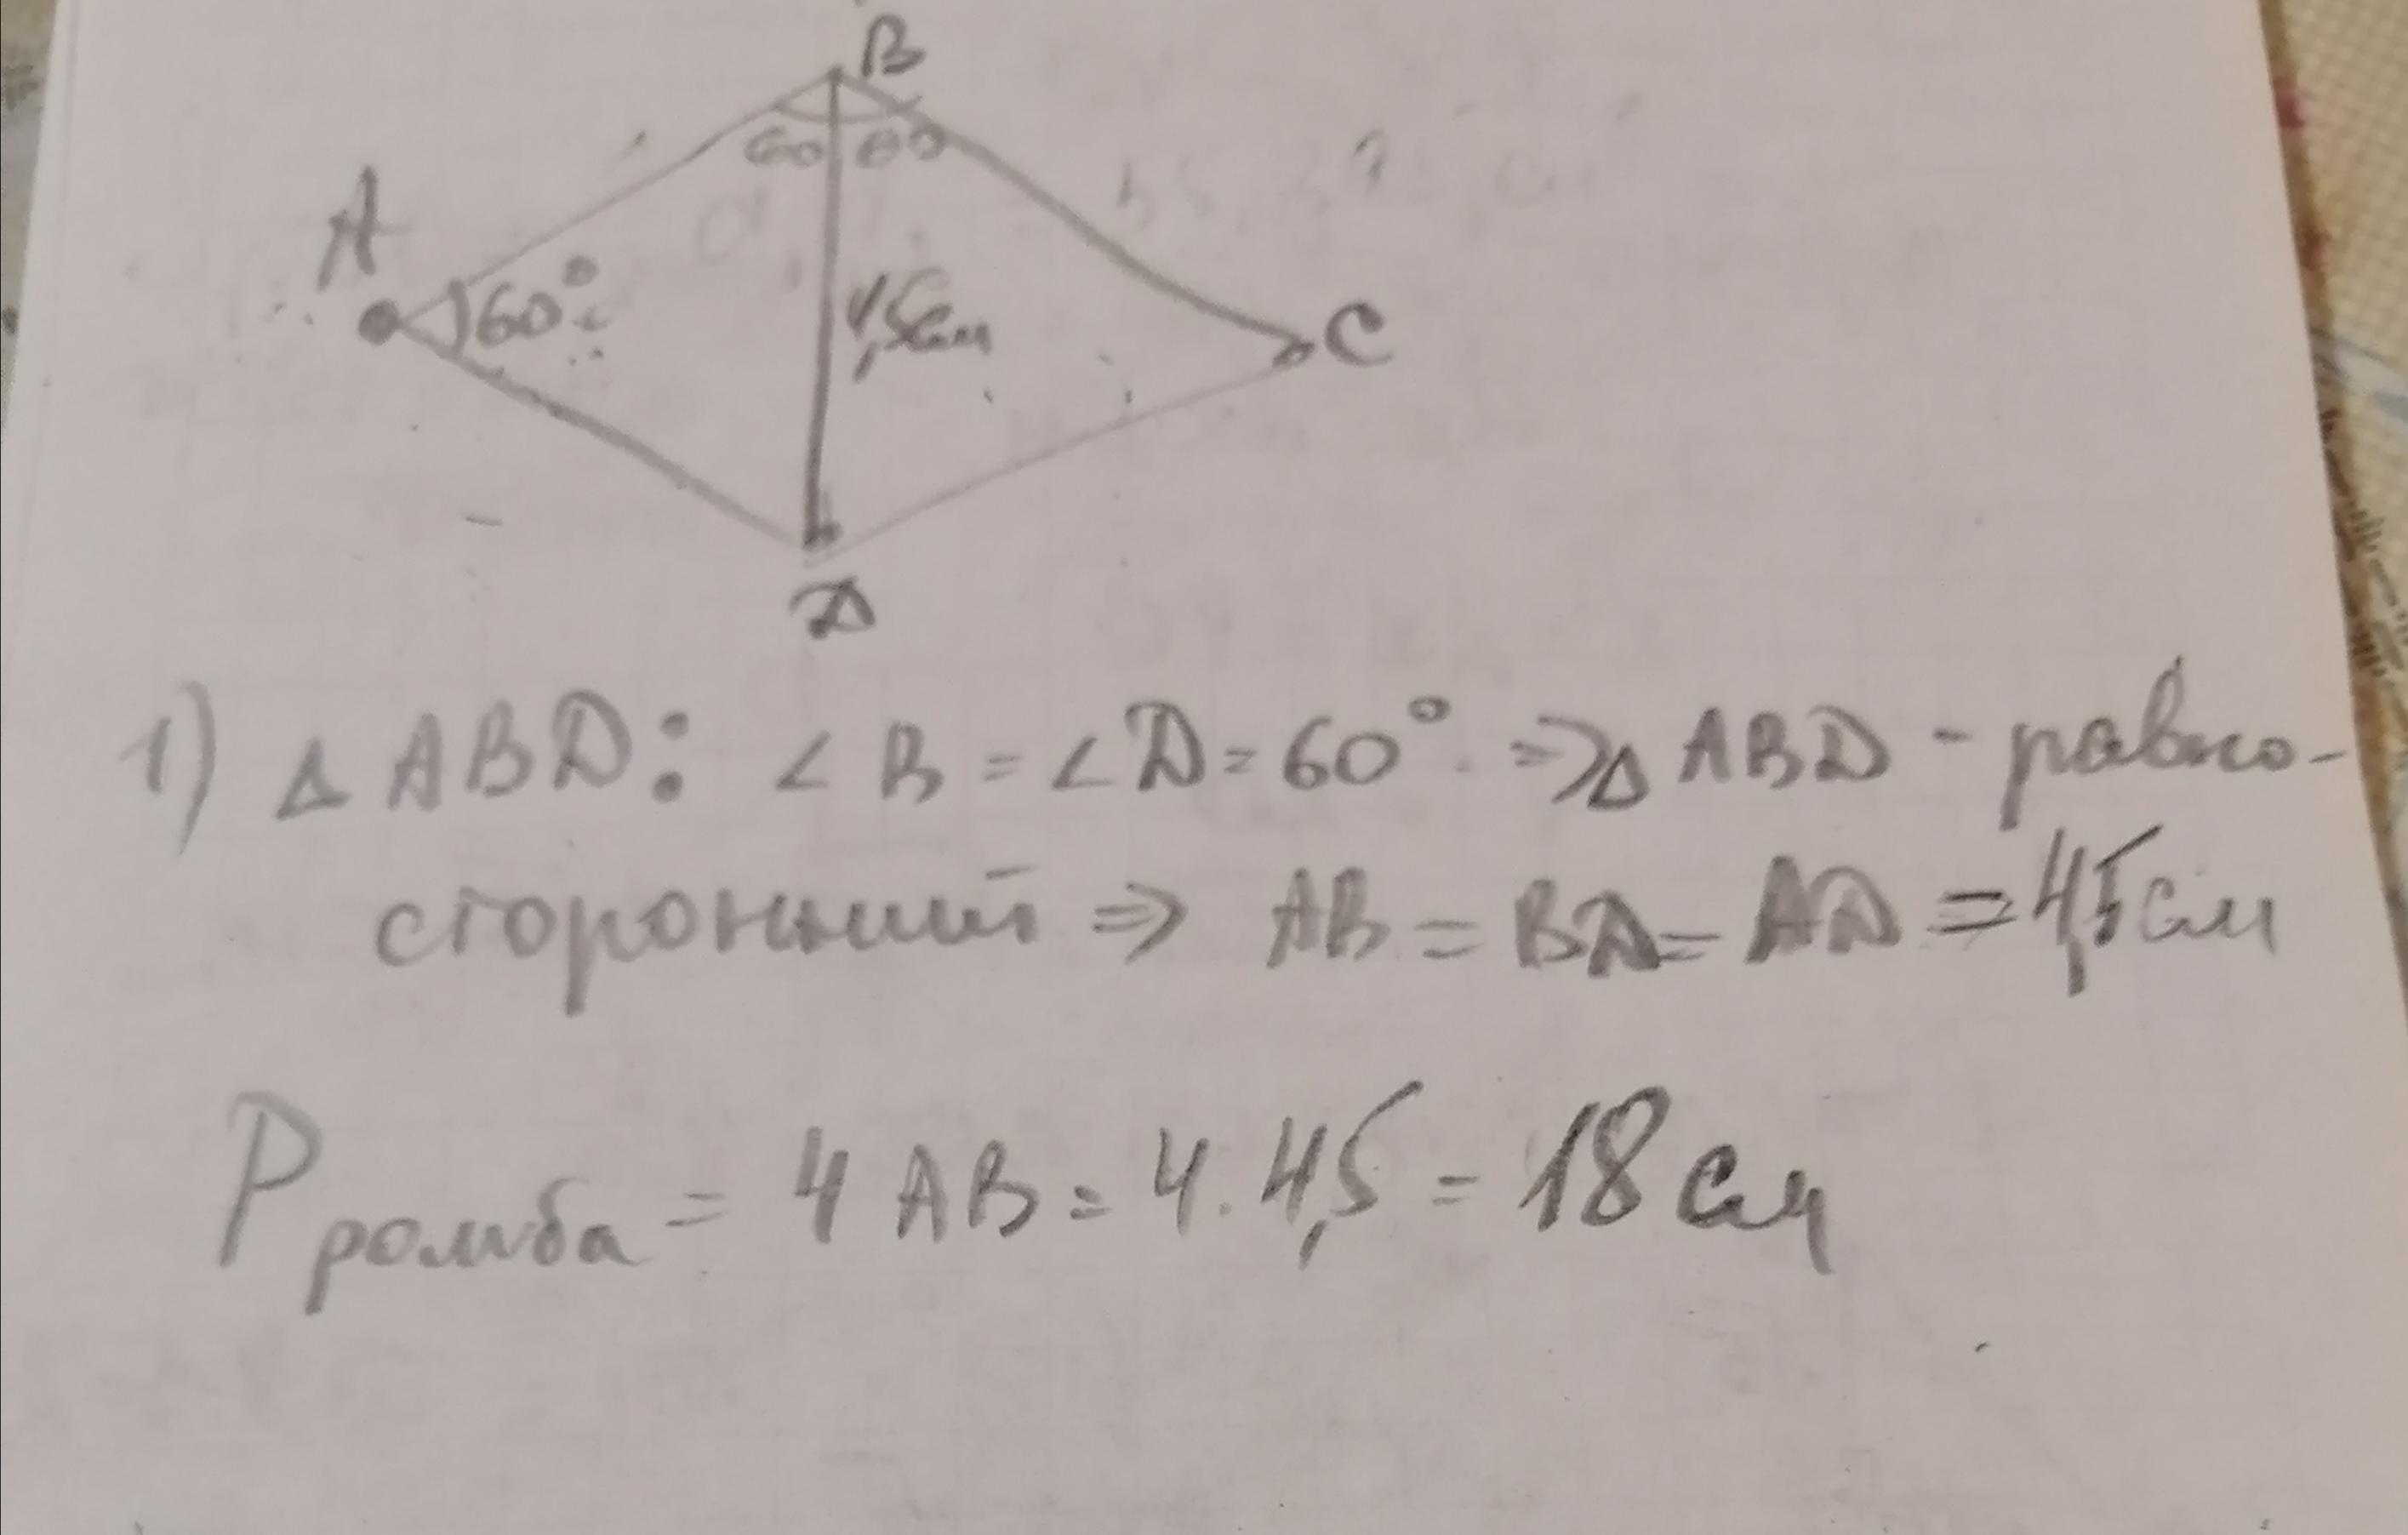 B
60 60
A
60°
4,5 см
C
D
1) Δ ABD: ∠ B = ∠ D = 60° ⇒ Δ ABD - равно-
сторонний ⇒ AB = BD = AD = 4,5 см
P ромба = 4 AB = 4 · 4,5 = 18 см